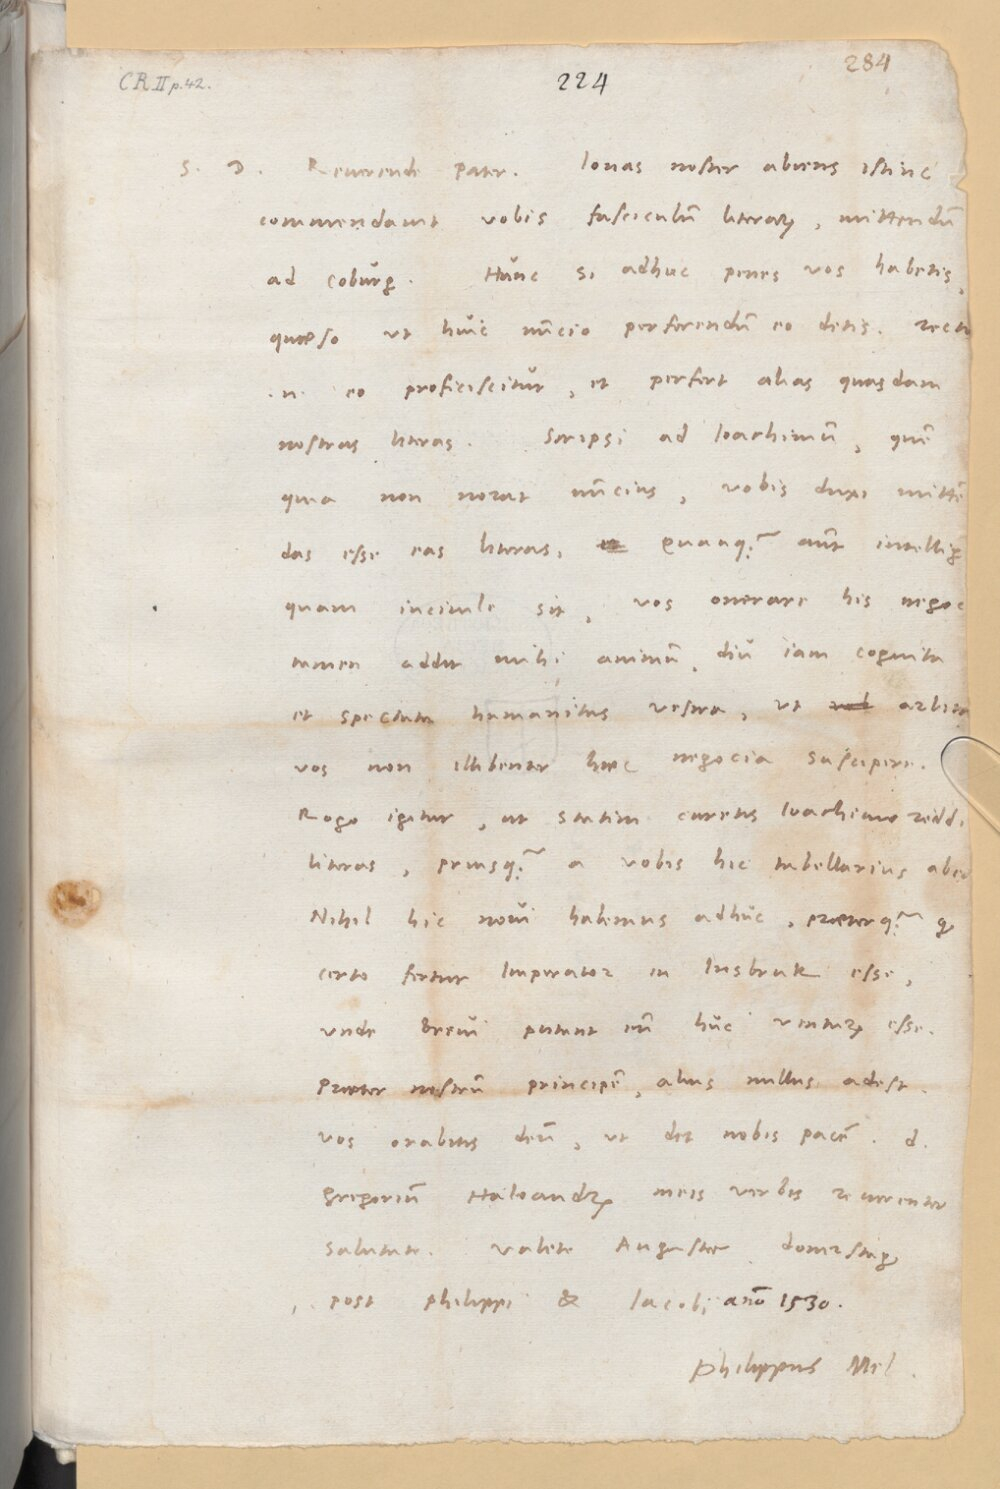 CR II p. 42.
224
284
S. D. Reuerende pater. Ionas noster abiens istinc
commendauit vobis fasciculū literaꝝ, mittendū
ad coburg. Hunc si adhuc penes vos habetis,
quæso vt huic nūcio perferendū eo detis. recta
.n. eo proficiscitur, et perfert alias quasdam
nostras literas. Scripsi ad Ioachimū, quē
quia non norat nūcius, vobis duxi mittē
das esse eas literas. Quanq̃ aūt intellig
quam inciuile sit, vos onerare his negoc
tamen addit mihi animū, diu iam cognita
et spectata humanitas vestra, vt arbitr
vos non illibenter hæc negocia suscipere.
Rogo igitur, ut statim curetis Ioachimo reddi
literas, priusq̃ a vobis hic tabellarius abea
Nihil hic noui habemus adhuc, præterq̃ qꝫ
certo fertur Imperator in Insbruk esse,
vnde breui putant eū huc venturꝝ esse.
Præter nostrū principē, alius nullus adest.
vos orabitis deū, vt det nobis pacē. d.
gregoriū Haloandrꝝ meis verbis reuerenter
salutate. Valete Augustæ donerstag
post philippi & Iacobi año 1530.
Philippus Mel.